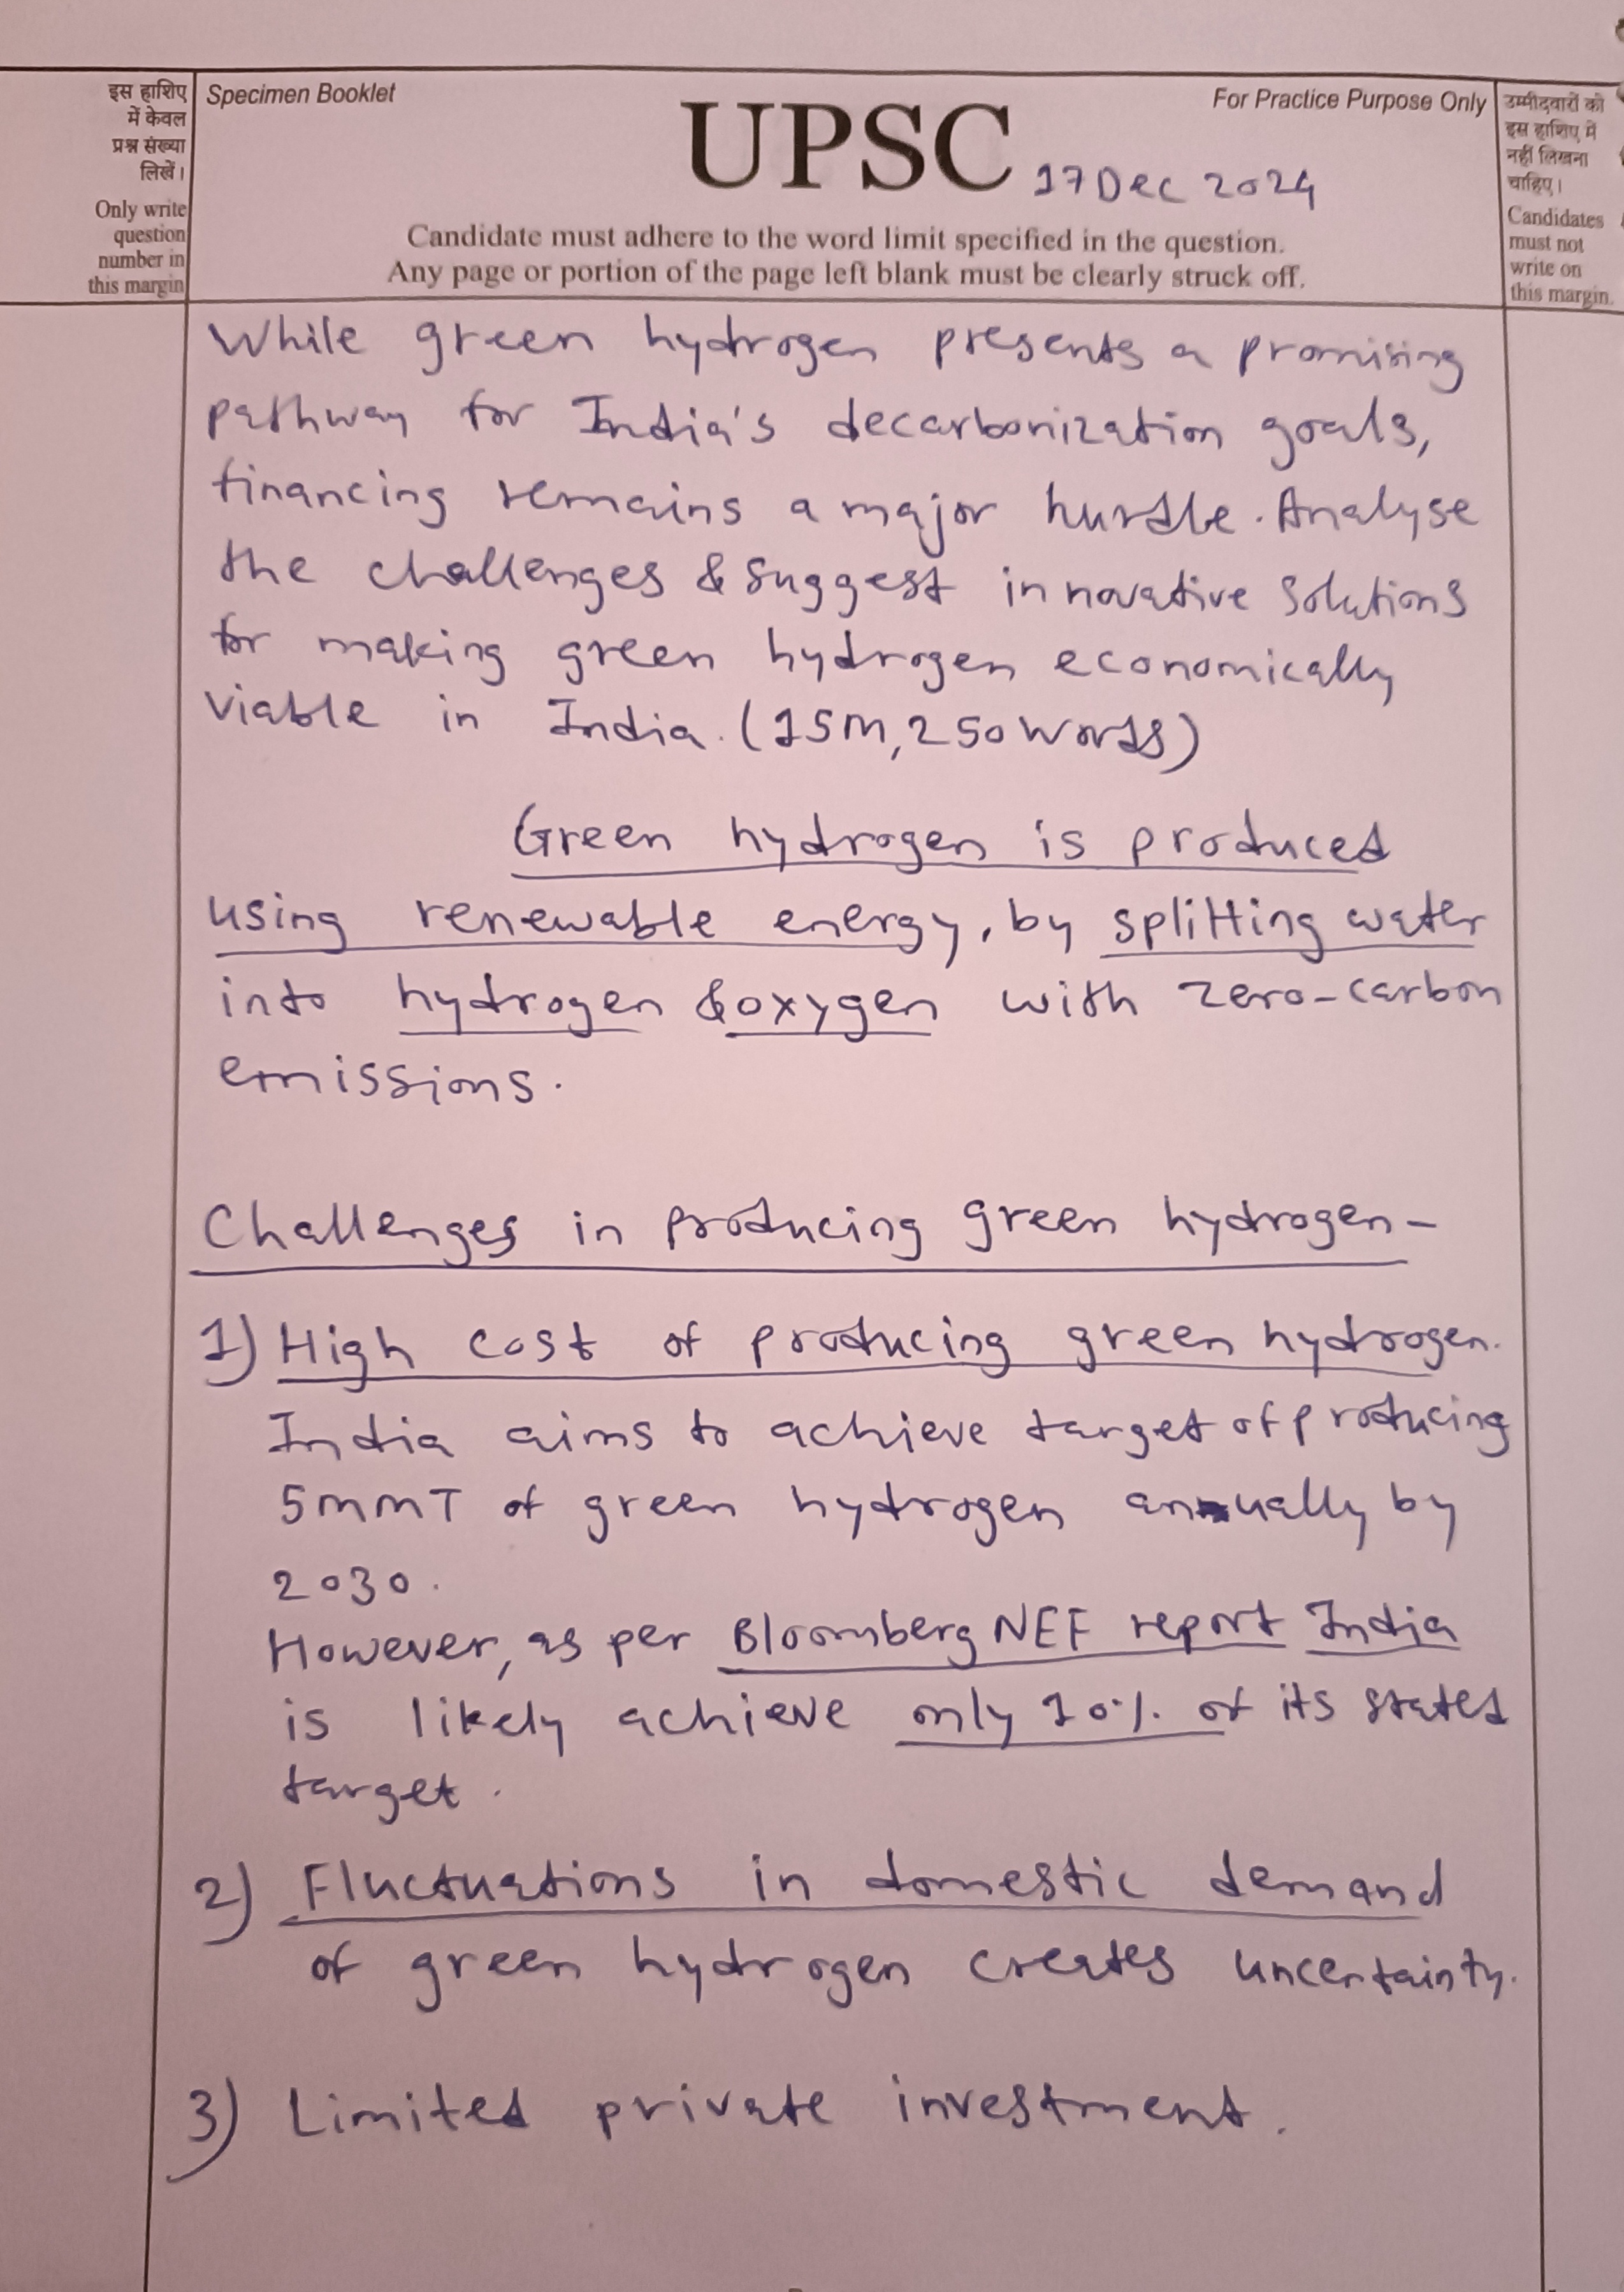 इस हाशिए
में केवल
प्रश्न संख्या
लिखें।
Only write
question
number in
this margin
Specimen Booklet
For Practice Purpose Only
UPSC
17 Dec 2024
Candidate must adhere to the word limit specified in the question.
Any page or portion of the page left blank must be clearly struck off.
उम्मीदवारों को
इस हाशिए में
नहीं लिखना
चाहिए।
Candidates
must not
write on
this margin.
While green hydrogen presents a promising
pathway for India's decarbonization goals,
financing remains a major hurdle. Analyse
the challenges & suggest innovative solutions
for making green hydrogen economically
viable in India. (15M, 250 words)
Green hydrogen is produced
using renewable energy, by splitting water
into hydrogen & oxygen with zero-carbon
emissions.
Challenges in producing green hydrogen-
1) High cost of producing green hydrogen.
India aims to achieve target of producing
5MMT of green hydrogen annually by
2030.
However, as per Bloomberg NEF report India
is likely achieve only 10% of its stated
target.
2) Fluctuations in domestic demand
of green hydrogen creates uncertainty.
3) Limited private investment.